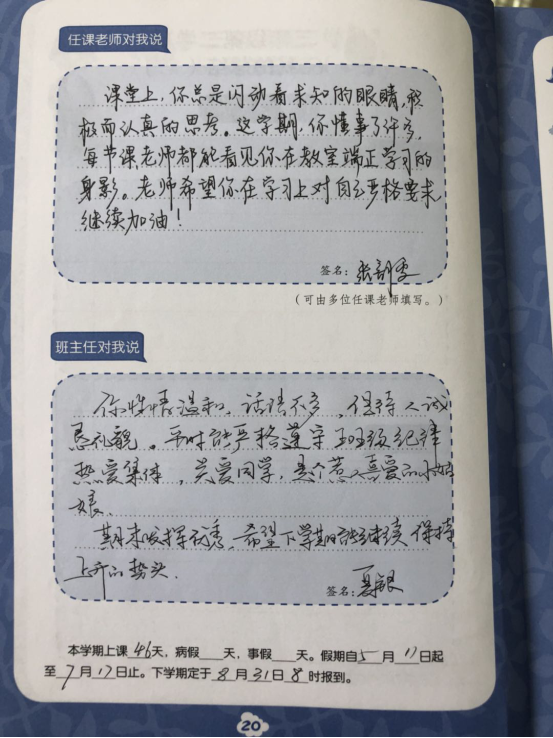 任课老师对我说
课堂上,你总是闪动着求知的眼睛,积
极而认真的思考。这学期,你懂事了许多,
每节课老师都能看见你在教室端正学习的
身影。老师希望你在学习上对自己严格要求
继续加油!
签名:
(可由多位任课老师填写。)
班主任对我说
你性情温和,话语不多,但待人诚
恳礼貌。平时能严格遵守班级纪律
热爱集体,关爱同学,是个惹人喜爱的小姑
娘。
期末发挥优秀,希望下学期能继续保持
上升的势头.
签名:夏银
本学期上课46天,病假 天,事假 天。假期自5月17日起
至7月17日止。下学期定于8月31日8时报到。
20